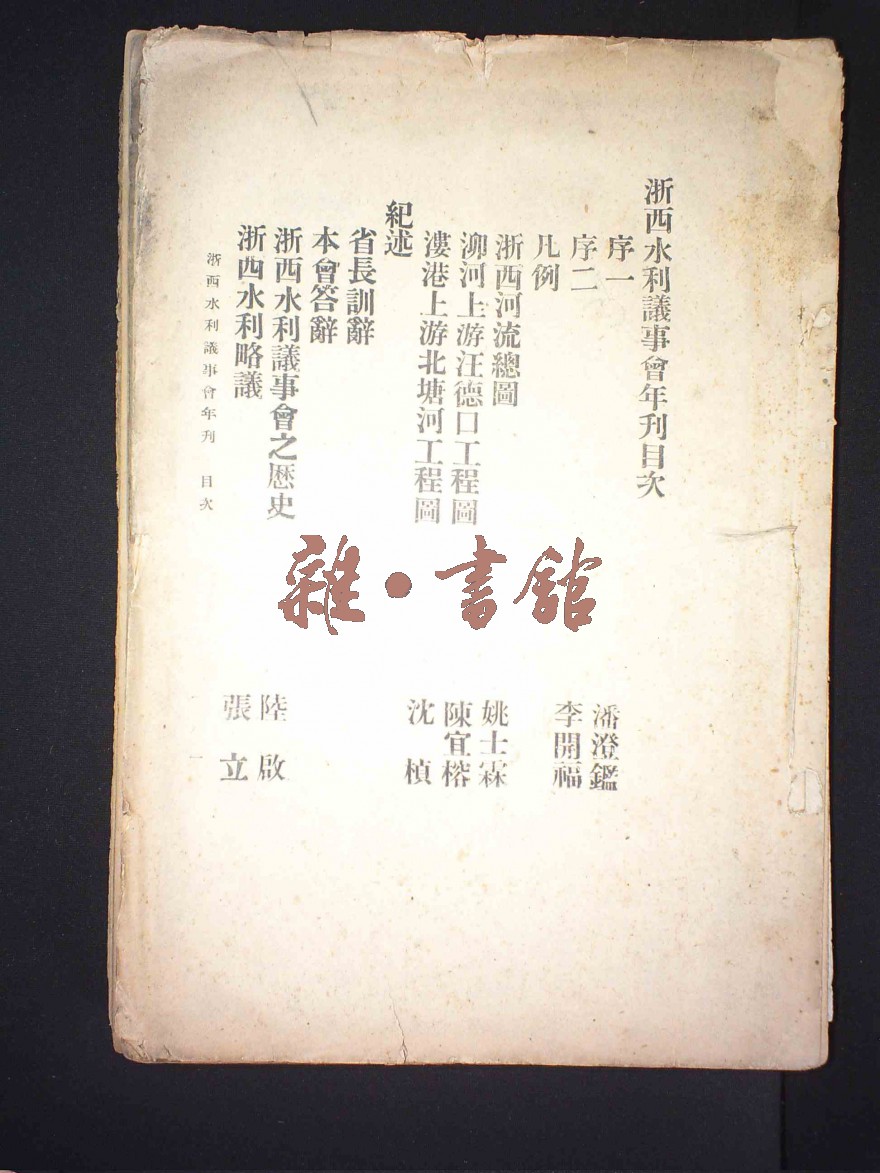 浙西水利議事會年刊目次
序一 潘澄鑑
序二 李開福
凡例
浙西河流總圖 姚士霖
泖河上游汪德口工程圖 陳宜榕
漊港上游北塘河工程圖 沈楨
紀述
省長訓辭
本會答辭
浙西水利議事會之歷史 陸啟
浙西水利略議 張立
浙西水利議事會年刊 目次 一
雜•書館